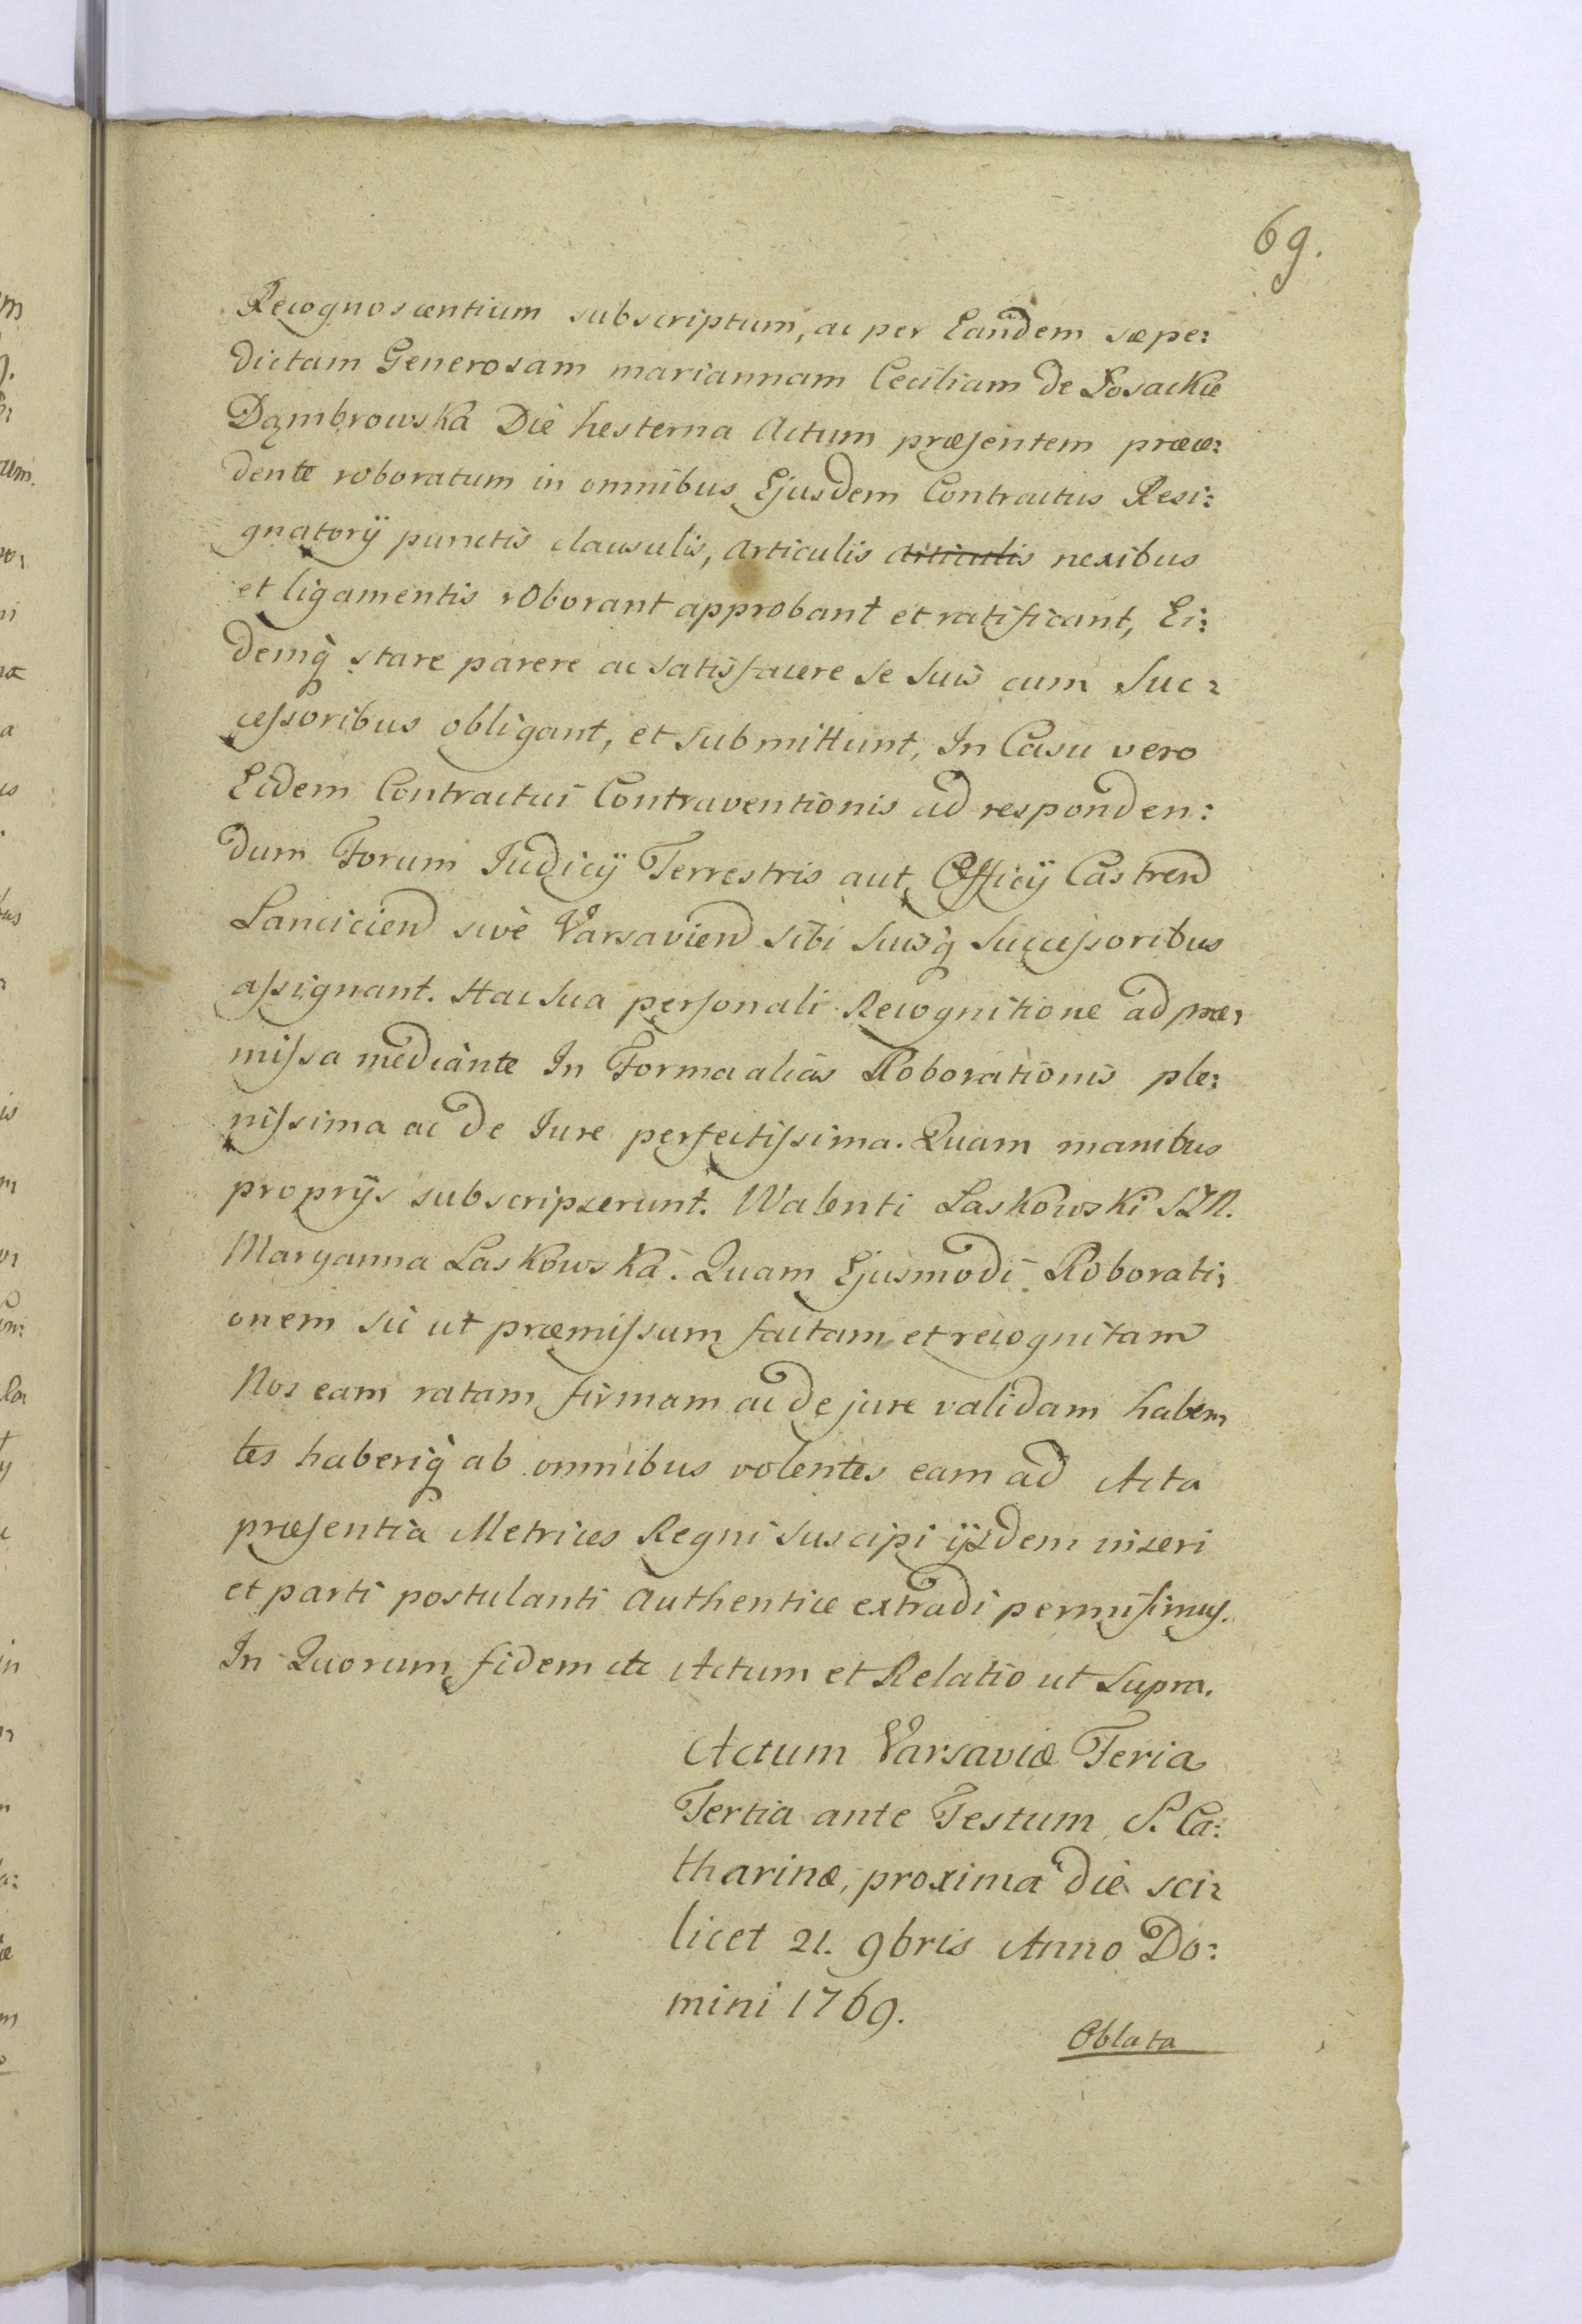 69.
Recognoscentium subscriptum, ac per Eandem sæpe:
dictam Generosam mariannam Ceciliam de Sosackie
Dąmbrowska Die hesterna Actum præsentem præce:
dente roboratum in omnibus Ejusdem Contractus Resi:
gnatorÿ punctis clausulis, articulis articulis nexibus
et ligamentis roborant approbant et ratificant, Ei:
demq̀ stare parere ac satisfacere se suis cum Suc:
cessoribus obligant, et submittunt, In Casu vero
Eidem Contractui Contraventionis ad responden:
dum Forum Judicÿ Terrestris aut Officÿ Castren
Lancicien sivè Varsavien sibi suisq̀ Successoribus
assignant. Hac sua personali Recognitione ad præ:
missa mediante In Forma aliàs Roborationis ple:
nissima ac de Jure perfectissima. Quam manibus
proprÿs subscripserunt. Walenti Laskowski SZN.
Maryanna Laskowska. Quam Ejusmodi Roborati:
onem sic ut præmissum factam et recognitam
Nos eam ratam firmam ac de jure validam haben:
tes haberiq̀ ab omnibus volentes eam ad Acta
præsentia Metrices Regni suscipi ÿsdem inseri
et parti postulanti Authentice extradi permisimus.
In Quorum fidem etc Actum et Relatio ut Supra.
Actum Varsaviæ Feria
Tertia ante Festum S. Ca:
tharinæ, proxima die sci:
licet 21. 9bris Anno Do:
mini 1769.
Oblata